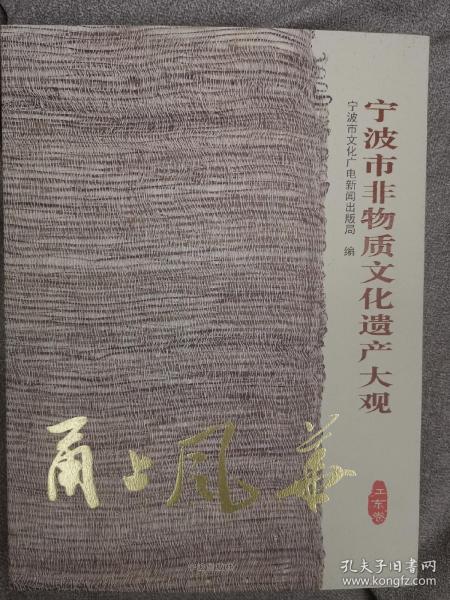 宁波市非物质文化遗产大观
宁波市文化广电新闻出版局 编
甬上风华
江东卷
孔夫子旧书网
www.kongfz.com